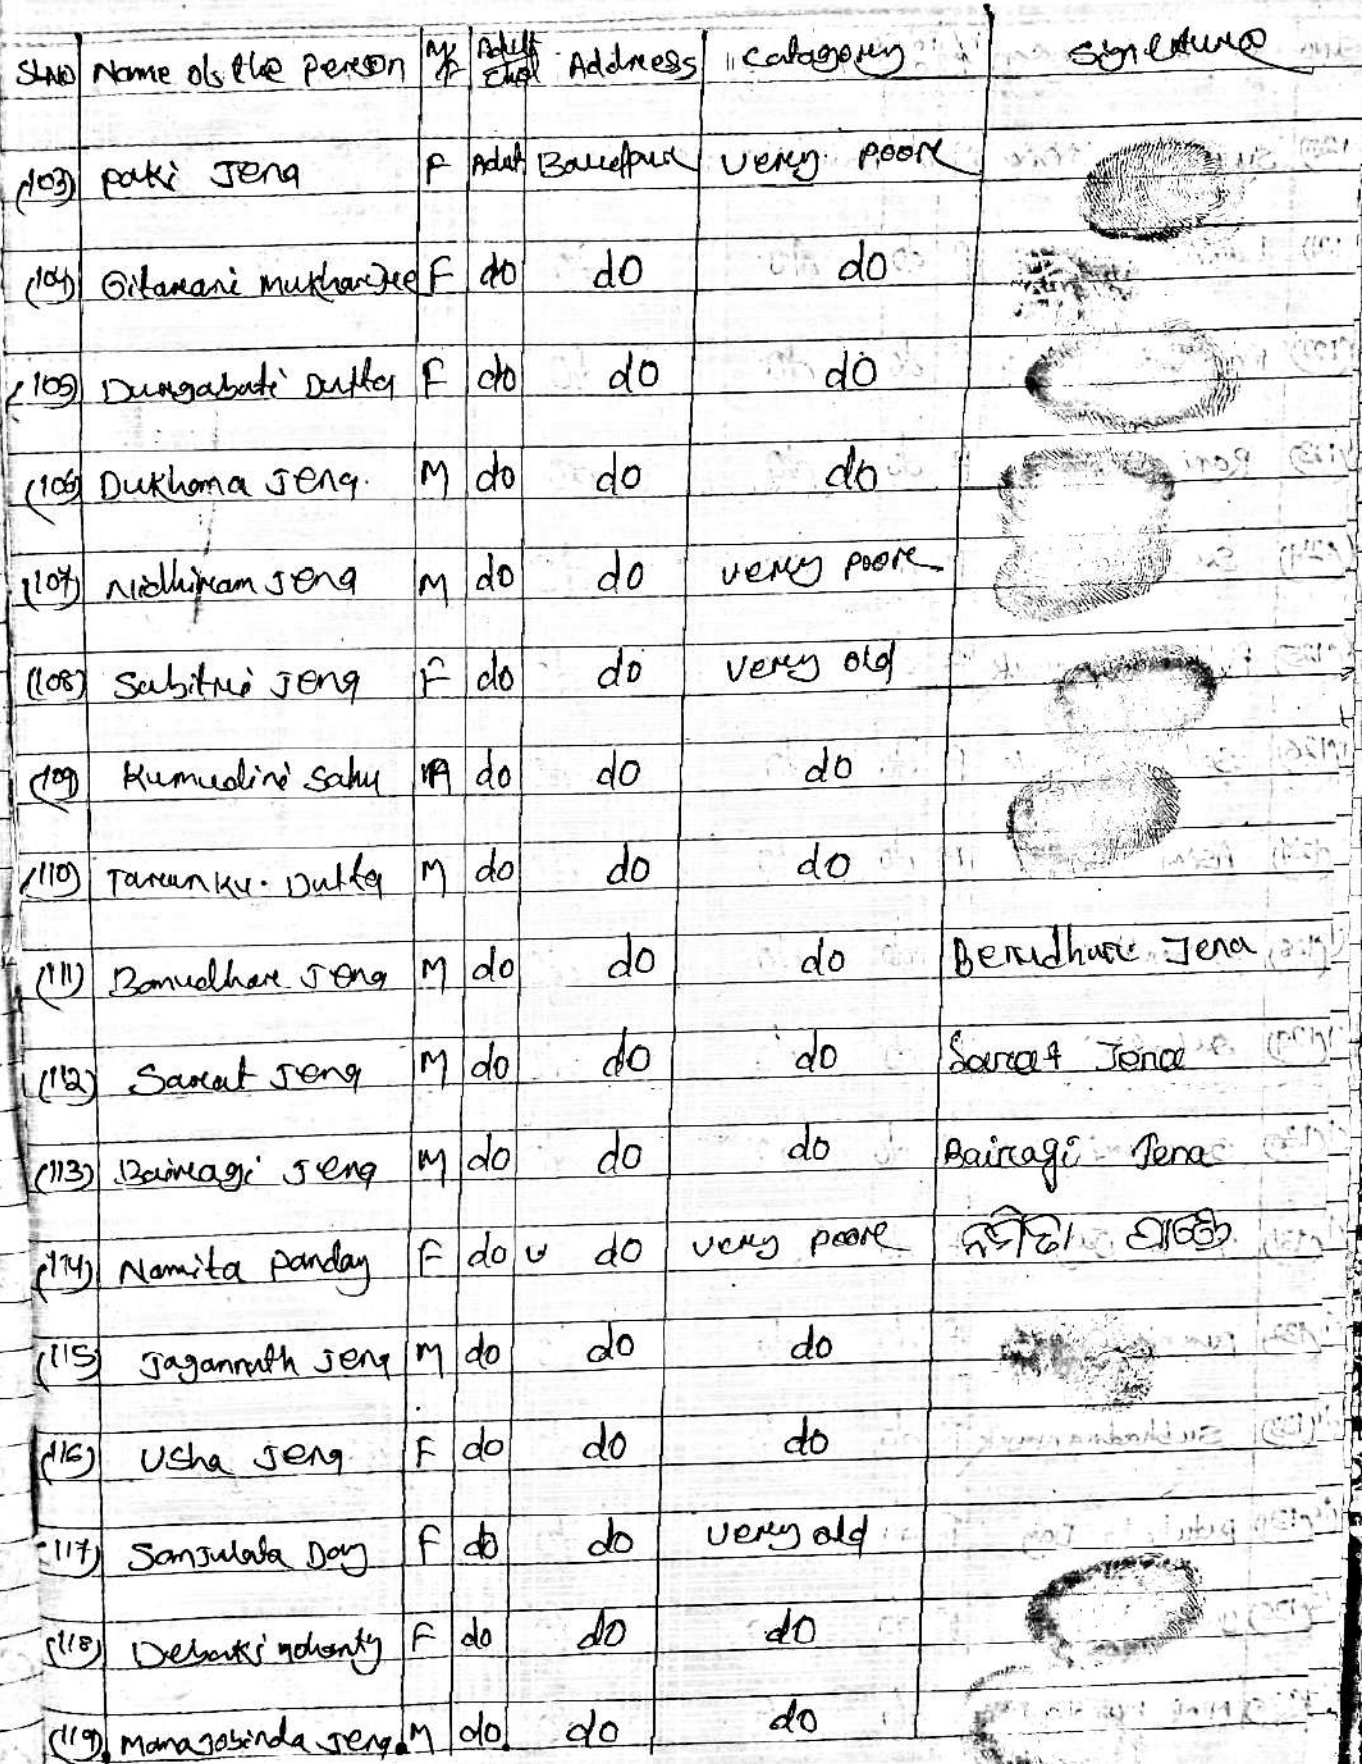 Sl.No Name of the Person M/F Adult Chal Address Catagory Signature
(103) Paki Jena F Adult very poore
(104) Gitarani Mukharjee F do do do
(105) Durgabati Dutta F do do do
(106) Dukhama Jena. M do do do
(107) Nidhiram Jena M do do very poore
(108) Sabitri Jena F do do very old
(109) Kumudini Sahu do do do
(110) Tarun Ku. Dutta M do do do
(111) Banudhare Jena M do do do Berudhare Jena
(112) Sarat Jena M do do do Sarat Jena
(113) Bairagi Jena M do do do Bairagi Jena
(114) Namita Panday F do do very poore ନମିତା ପାଣ୍ଡେ
(115) Jagannath Jena M do do do
(116) Usha Jena F do do do
(117) Sanjulata Day F do do very old
(118) Debaki Mohanty F do do do
(119) Managobinda Jena. M do do do